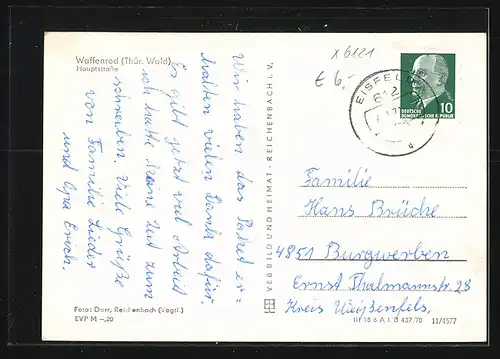 Waffenrod (Thür. Wald)
Hauptstraße
Wir haben das Paket er=
halten vielen Dank dafür.
Es gibt jetzt viel Arbeit
ich hatte keine Zeit zum
schreiben. Viele Grüße
von Familie Lieder
und Opa Erich.
Foto: Darr, Reichenbach (Vogtl.)
EVP M –,20
VEB BILD UND HEIMAT · REICHENBACH I. V.
x6121
€ 6,-
EISFELD
612
10
DEUTSCHE
DEMOKRATISCHE REPUBLIK
Familie
Hans Brücke
4851 Burgwerben
Ernst Thälmannstr. 28
Kreis Weißenfels.
III 18 6 A 1. B 437/70 11/4577